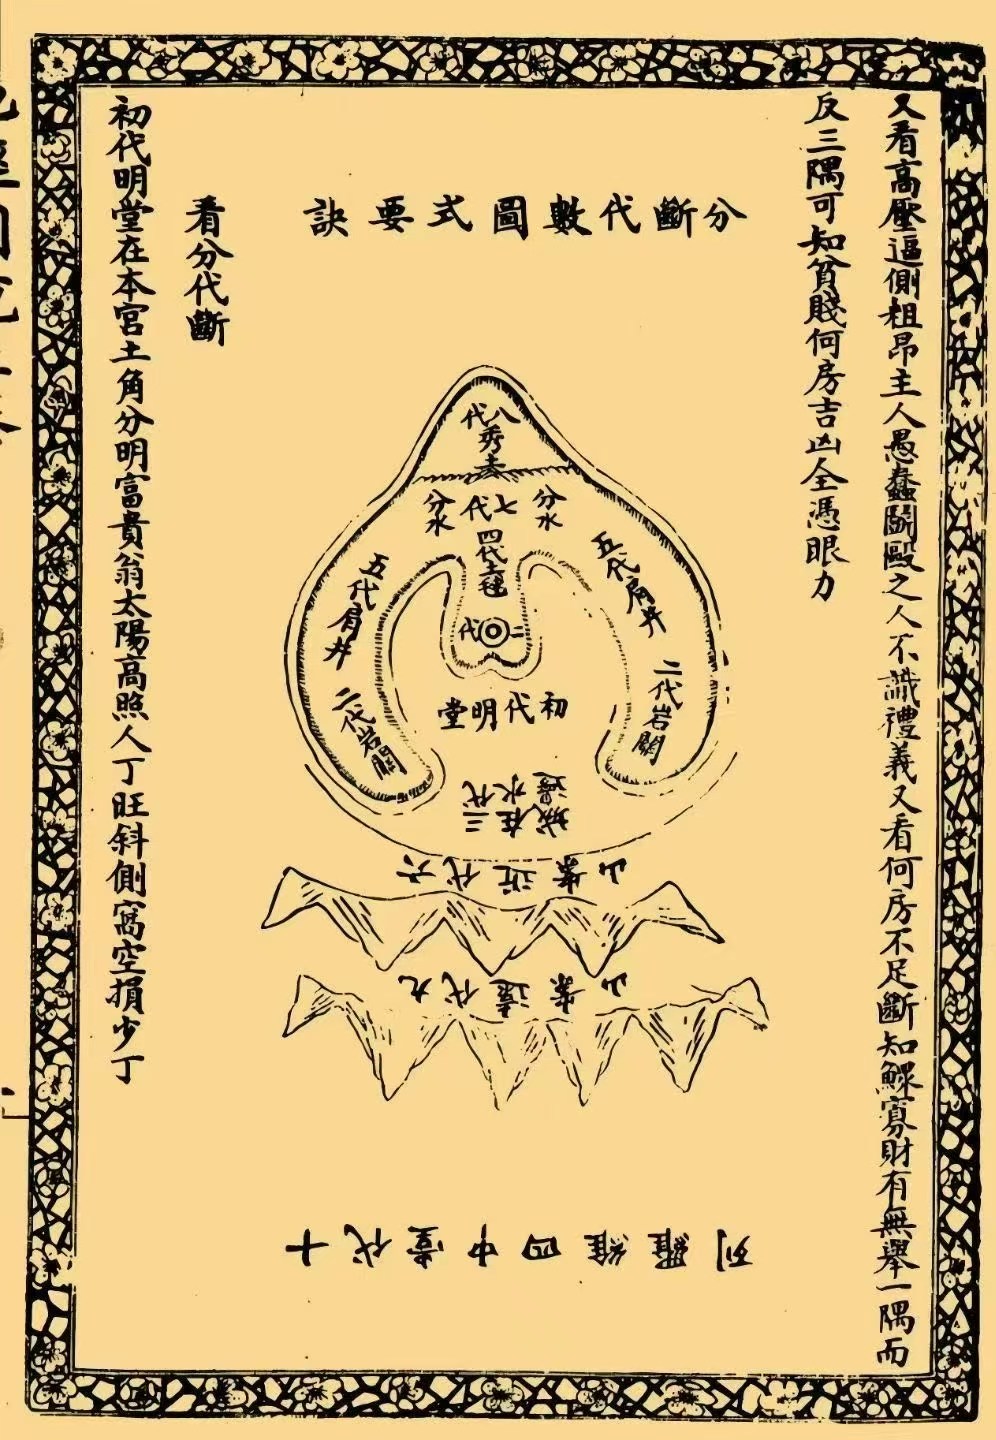 又看高壓逼側粗昂主人愚蠢鬬毆之人不識禮義又看何房不足斷知鰥寡財有無舉一隅而
反三隅可知貧賤何房吉凶全憑眼力
分斷代數圖式要訣
八代秀麦
七代
分水
分水
四代土毬
五代肩井
五代肩井
二代
二代岩關
二代岩關
初代明堂
三代在水邊城
六代近案山
九代遠案山
十代堂中四維羅列
看分代斷
初代明堂在本宮土角分明富貴翁太陽高照人丁旺斜側窩空損少丁